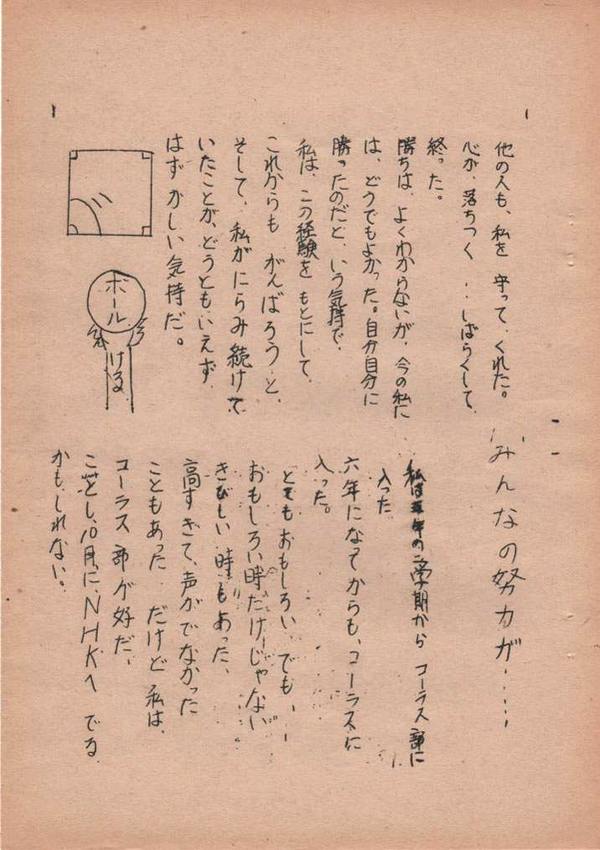 他の人も、私を守って、くれた。
心が、落ちつく・・しばらくして、
終った。
勝ちは、よくわからないが、今の私に
は、どうでもよかった。自分自分に
勝ったのだと、いう気持で、
私は、この経験をもとにして、
これからもがんばろうと、
そして、私がにらみ続けて
いたことが、どうともいえず、
はずかしい気持だ。
ボール
ける
みんなの努力が‥‥‥
私は五年の二学期からコーラス部に
入った
六年になってからも、コーラスに
入った。
とてもおもしろい、でも、
おもしろい時だけじゃない
きびしい時もあった、
高すぎて、声がでなかった
こともあった だけど私は、
コーラス部が好だ、
ことし、10月に、NHKへでる
かもしれない。